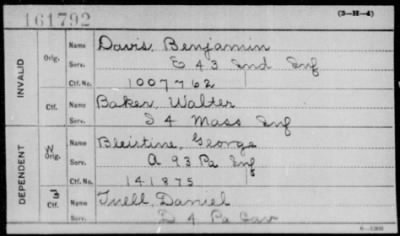 161792
(3-H-4)
INVALID
Orig.
Name Davis, Benjamin
Serv. E 43 Ind Inf
Ctf. No. 1007762
Ctf.
Name Baker, Walter
Serv. I 4 Mass Inf
DEPENDENT
W Orig.
Name Bleistine, George
Serv. A 93 Pa Inf
Ctf. No. 141875
Ctf.
Name Daniel
Serv. D 4 Pa Cav